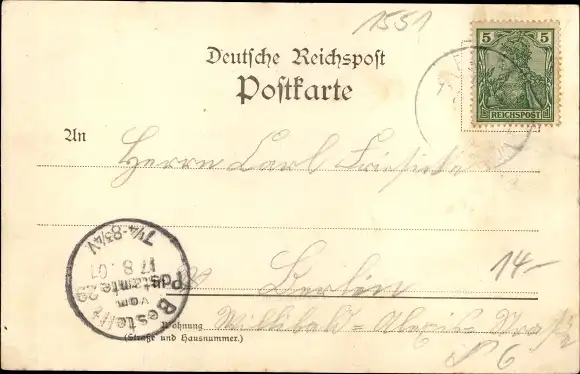 1551
Deutsche Reichspost
Postkarte
5 5
REICHSPOST
An
Herrn Carl
Berlin
14-
Bestellt
vom
Postamte 29
17.8.01
7¼-8¾V.
Wohnung Willibald=Alexis=Straße
(Straße und Hausnummer.)